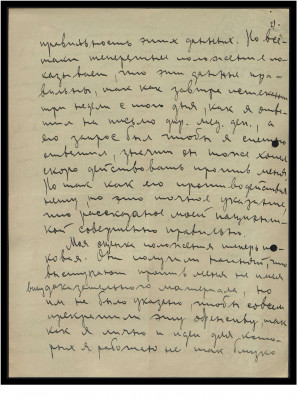 правильность этих данных. Но всё-
таки теперешнее положение по-
казывает, что эти данные пра-
вильны, так как завтра истекает
три недели с того дня, как я отве-
тил на письмо дир. мед. деп., а
его запрос был чтобы я спешно
ответил, значит он тоже хотел
скоро действовать против меня.
Но так как его противодействия
нету, но это точное указание,
что рассказанное моей пациент-
кой совершенно правильно.
Моя оценка положения теперь
такова. Они получили
выступают против меня не имея
доказательного материала, но
им не было указано, чтобы совсем
прекратили эту офенсиву, так
как я лично и идеи для кото-
рых я работаю не так близко